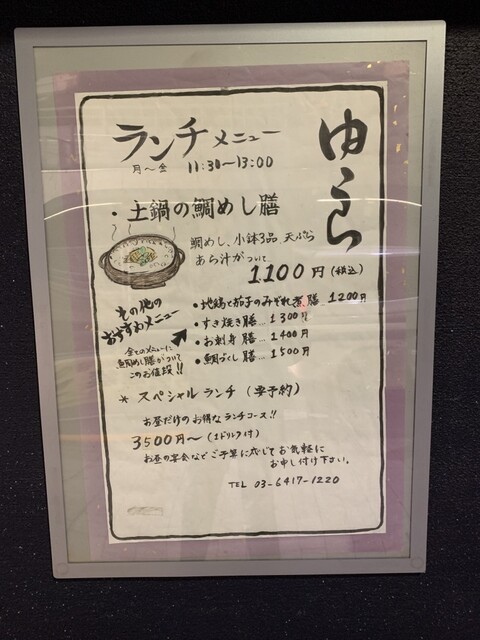 ランチメニュー
月〜金 11:30〜13:00
ゆうら
・土鍋の鯛めし膳
鯛めし、小鉢3品、天ぷら
あら汁がついて
1100円(税込)
その他の
おすすめメニュー
全てのメニューに
鯛めし膳がついて
このお値段!!
・地鶏と茄子のみぞれ煮膳 1200円
・すき焼き膳…1300円
・お刺身膳…1400円
・鯛づくし膳…1500円
* スペシャルランチ(要予約)
お昼だけのお得なランチコース!!
3500円〜(1ドリンク付)
お昼の宴会などご予算に応じてお気軽に
お申し付け下さい。
TEL 03-6417-1220